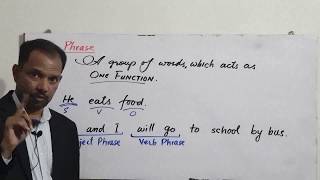 Phrase
A group of words, which acts as
ONE FUNCTION.
He eats food.
S V O
and I will go to school by bus.
ject Phrase Verb Phrase